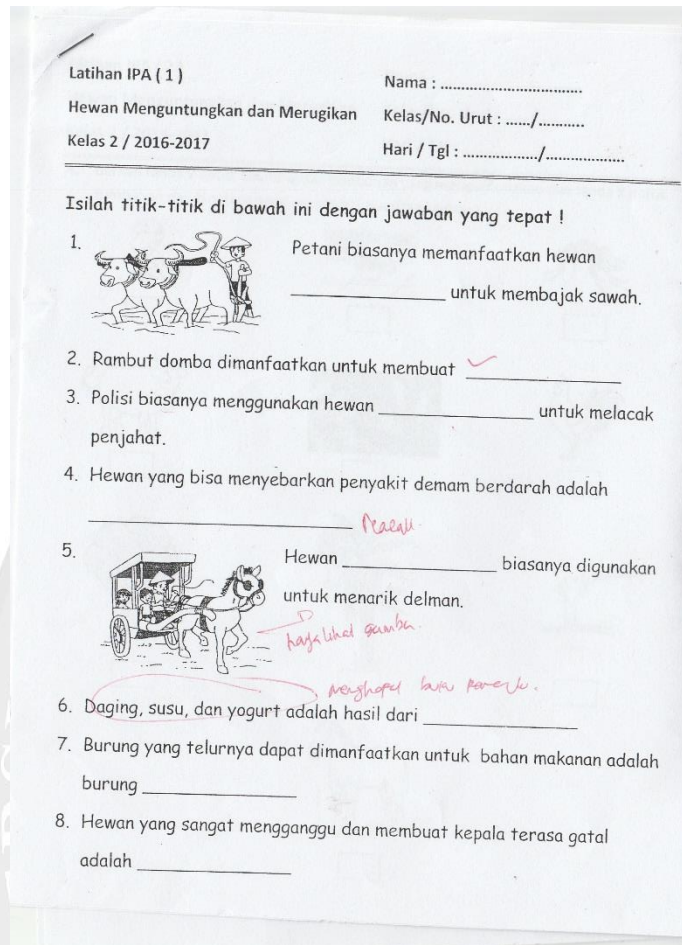 Latihan IPA ( 1 )
Nama : ..................................
Hewan Menguntungkan dan Merugikan
Kelas/No. Urut : ....../...........
Kelas 2 / 2016-2017
Hari / Tgl : ................../...................
Isilah titik-titik di bawah ini dengan jawaban yang tepat !
1. Petani biasanya memanfaatkan hewan
________________ untuk membajak sawah.
2. Rambut domba dimanfaatkan untuk membuat ________________
3. Polisi biasanya menggunakan hewan ________________ untuk melacak
penjahat.
4. Hewan yang bisa menyebarkan penyakit demam berdarah adalah
____________________________
5. Hewan ________________ biasanya digunakan
untuk menarik delman.
hanya lihat gambar.
menghapal
6. Daging, susu, dan yogurt adalah hasil dari ________________
7. Burung yang telurnya dapat dimanfaatkan untuk bahan makanan adalah
burung ________________
8. Hewan yang sangat mengganggu dan membuat kepala terasa gatal
adalah ________________